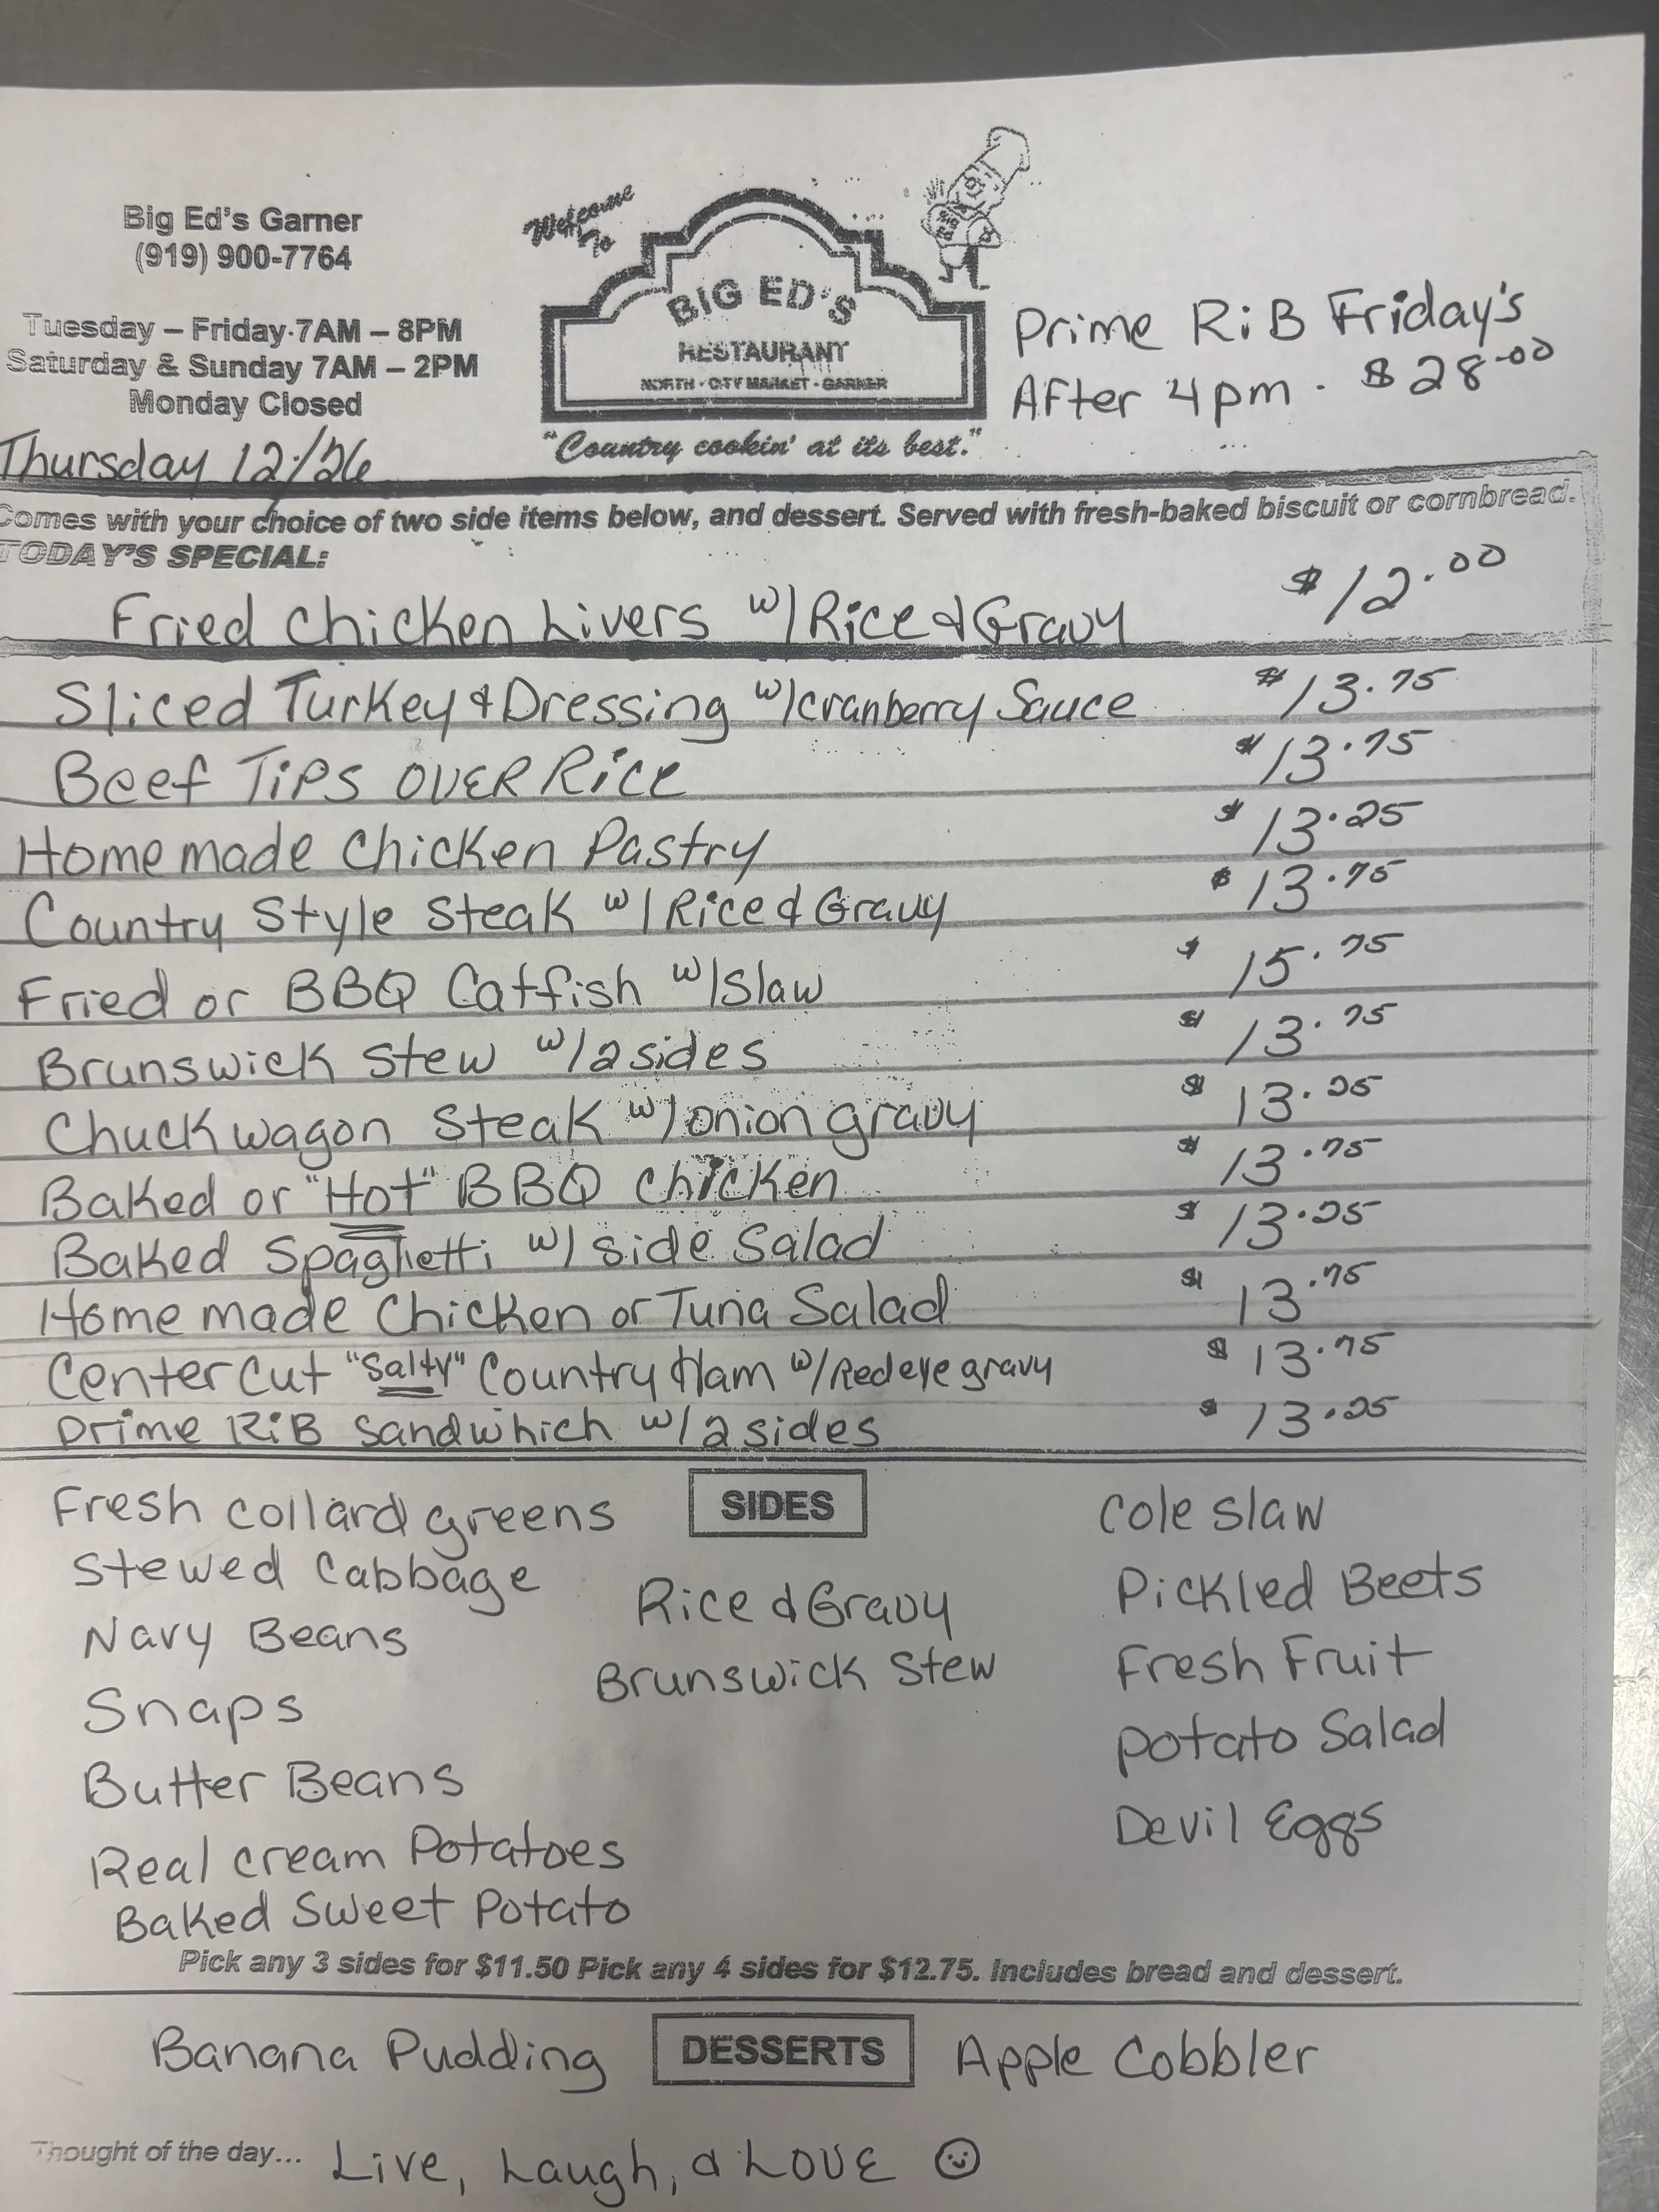 Big Ed's Garner
(919) 900-7764
Tuesday – Friday 7AM – 8PM
Saturday & Sunday 7AM – 2PM
Monday Closed
Thursday 12/26
Welcome
To
BIG ED'S
RESTAURANT
NORTH · CITY MARKET · GARNER
"Country cookin' at its best."
Prime RiB Friday's
After 4pm - $28.00
Comes with your choice of two side items below, and dessert. Served with fresh-baked biscuit or cornbread.
TODAY'S SPECIAL:
Fried Chicken Livers w/Rice & Gravy $12.00
Sliced Turkey & Dressing w/cranberry Sauce $13.75
Beef Tips OVER Rice $13.75
Homemade Chicken Pastry $13.25
Country Style Steak w/Rice & Gravy $13.75
Fried or BBQ Catfish w/Slaw $15.75
Brunswick Stew w/2 sides $13.75
Chuckwagon Steak w/onion gravy $13.25
Baked or "Hot" BBQ Chicken $13.75
Baked Spaghetti w/ side Salad $13.25
Homemade Chicken or Tuna Salad $13.75
Center Cut "Salty" Country Ham w/Redeye gravy $13.75
Prime RiB Sandwhich w/2 sides $13.25
SIDES
Fresh collard greens
Stewed Cabbage
Navy Beans
Snaps
Butter Beans
Real cream Potatoes
Baked Sweet Potato
Rice & Gravy
Brunswick Stew
Cole Slaw
Pickled Beets
Fresh Fruit
Potato Salad
Devil Eggs
Pick any 3 sides for $11.50 Pick any 4 sides for $12.75. Includes bread and dessert.
DESSERTS
Banana Pudding
Apple Cobbler
Thought of the day... Live, Laugh, & LOVE